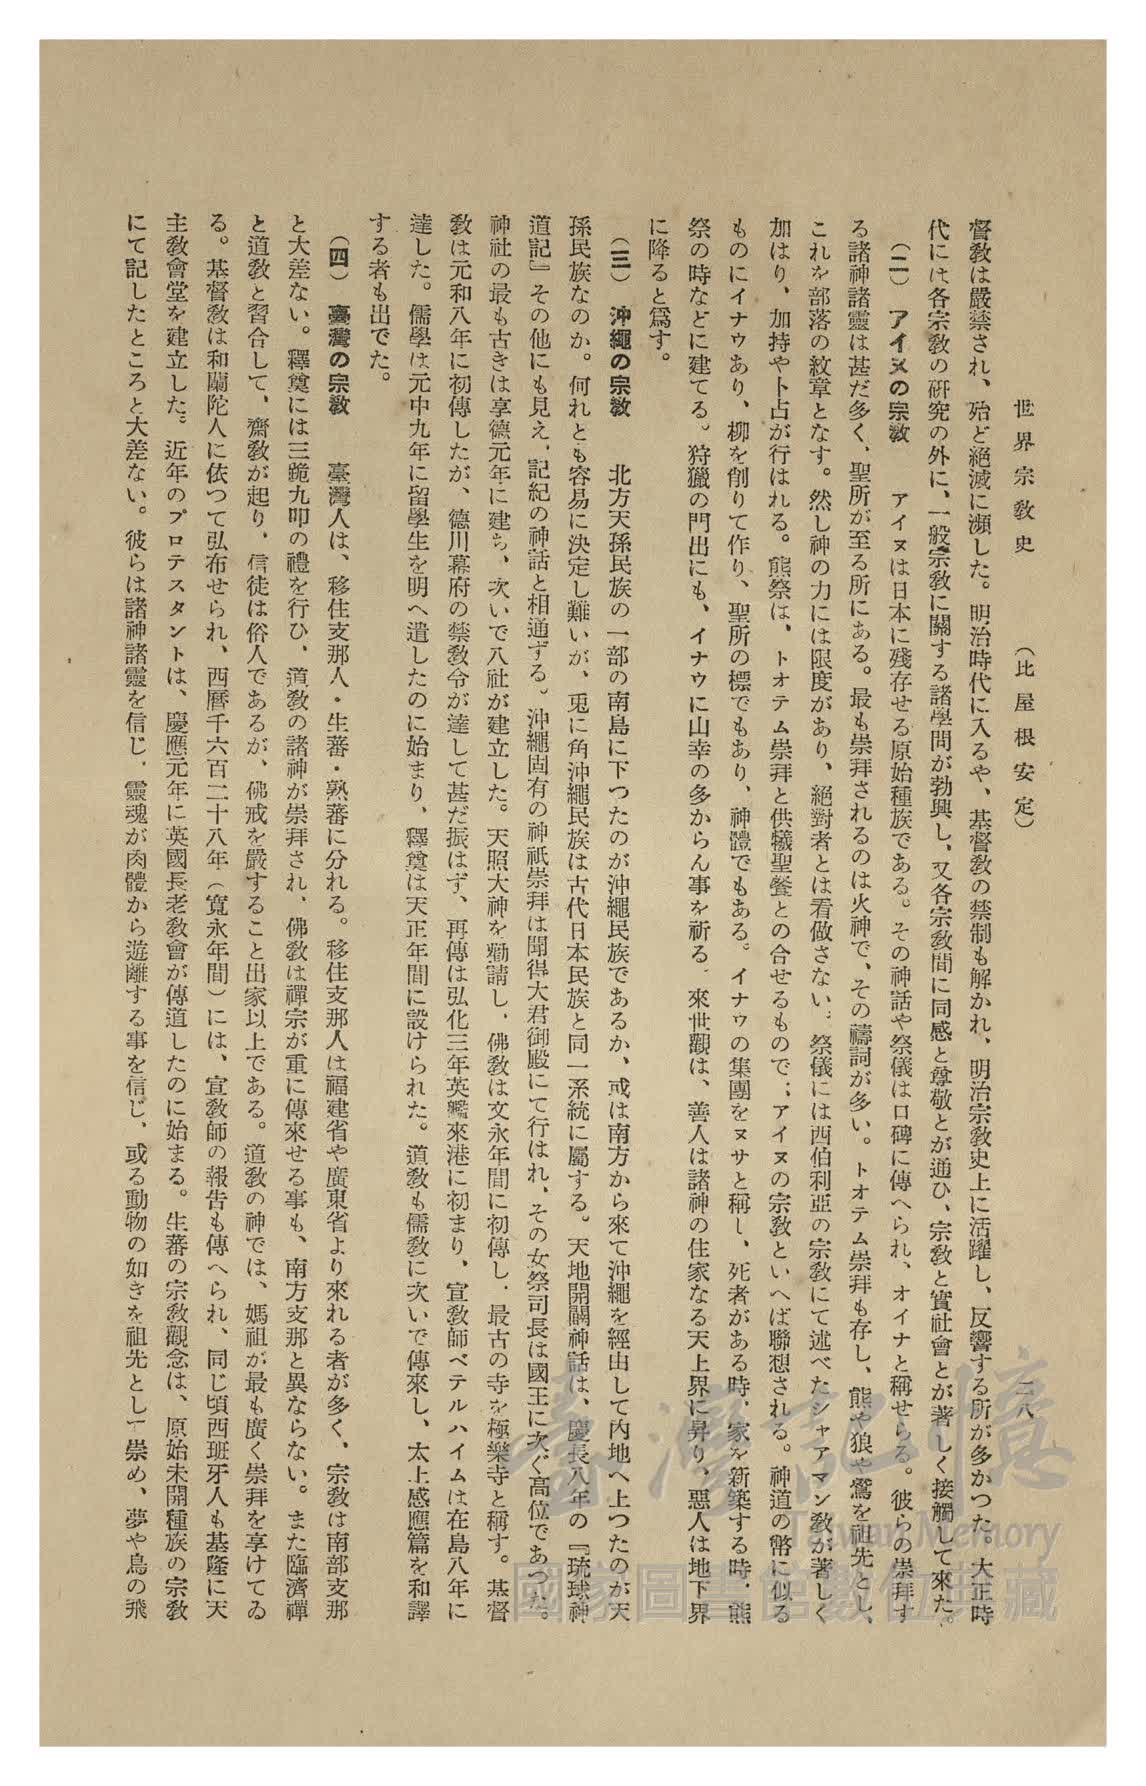 世界宗教史　（比屋根安定）　二八
督教は嚴禁され、殆ど絶滅に瀕した。明治時代に入るや、基督教の禁制も解かれ、明治宗教史上に活躍し、反響する所が多かつた。大正時
代には各宗教の研究の外に、一般宗教に關する諸學問が勃興し、又各宗教間に同感と尊敬とが通ひ、宗教と實社會とが著しく接觸して來た。
（二）　アイヌの宗教　アイヌは日本に殘存せる原始種族である。その神話や祭儀は口碑に傳へられ、オイナと稱せらる。彼らの崇拜す
る諸神諸靈は甚だ多く、聖所が至る所にある。最も崇拜されるのは火神で、その禱詞が多い。トオテム崇拜も存し、熊や狼や鷲を祖先とし、
これを部落の紋章となす。然し神の力には限度があり、絕對者とは看做さない。祭儀には西伯利亞の宗教にて述べたシャアマン教が著しく
加はり、加持や卜占が行はれる。熊祭は、トオテム崇拜と供犧聖餐との合せるもので、アイヌの宗教といへば聯想される。神道の幣に似る
ものにイナウあり、柳を削りて作り、聖所の標でもあり、神體でもある。イナウの集團をヌサと稱し、死者がある時、家を新築する時、熊
祭の時などに建てる。狩獵の門出にも、イナウに山幸の多からん事を祈る。來世觀は、善人は諸神の住家なる天上界に昇り、惡人は地下界
に降ると爲す。
（三）　沖繩の宗教　北方天孫民族の一部の南島に下つたのが沖繩民族であるか、或は南方から來て沖繩を經由して內地へ上つたのが天
孫民族なのか。何れとも容易に決定し難いが、兎に角沖繩民族は古代日本民族と同一系統に屬する。天地開闢神話は、慶長八年の『琉球神
道記』その他にも見え、記紀の神話と相通ずる。沖繩固有の神祇崇拜は聞得大君御殿にて行はれ、その女祭司長は國王に次ぐ高位であつた。
神社の最も古きは享德元年に建ち、次いで八社が建立した。天照大神を勸請し、佛教は文永年間に初傳し、最古の寺を極樂寺と稱す。基督
教は元和八年に初傳したが、德川幕府の禁教令が達して甚だ振はず、再傳は弘化三年英艦來港に初まり、宣教師ベテルハイムは在島八年に
達した。儒學は元中九年に留學生を明へ遣したのに始まり、釋奠は天正年間に設けられた。道教も儒教に次いで傳來し、太上感應篇を和譯
する者も出でた。
（四）　臺灣の宗教　臺灣人は、移住支那人・生蕃・熟蕃に分れる。移住支那人は福建省や廣東省より來れる者が多く、宗教は南部支那
と大差ない。釋奠には三跪九叩の禮を行ひ、道教の諸神が崇拜され、佛教は禪宗が重に傳來せる事も、南方支那と異ならない。また臨濟禪
と道教と習合して、齋教が起り、信徒は俗人であるが、佛戒を嚴すること出家以上である。道教の神では、媽祖が最も廣く崇拜を享けてゐ
る。基督教は和蘭陀人に依つて弘布せられ、西曆千六百二十八年（寬永年間）には、宣教師の報告も傳へられ、同じ頃西班牙人も基隆に天
主教會堂を建立した。近年のプロテスタントは、慶應元年に英國長老教會が傳道したのに始まる。生蕃の宗教觀念は、原始未開種族の宗教
にて記したところと大差ない。彼らは諸神諸靈を信じ、靈魂が肉體から遊離する事を信じ、或る動物の如きを祖先として崇め、夢や鳥の飛
臺灣記憶
Taiwan Memory
國家圖書館數位典藏